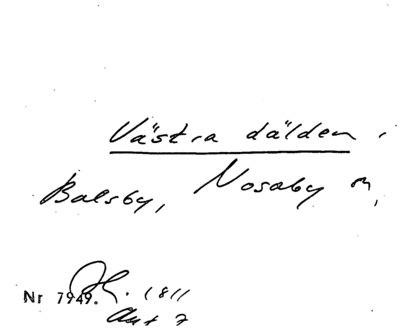 Västra dälden i
Balsby, Nosaby sn,
Nr 7949. 1811
Akt 7